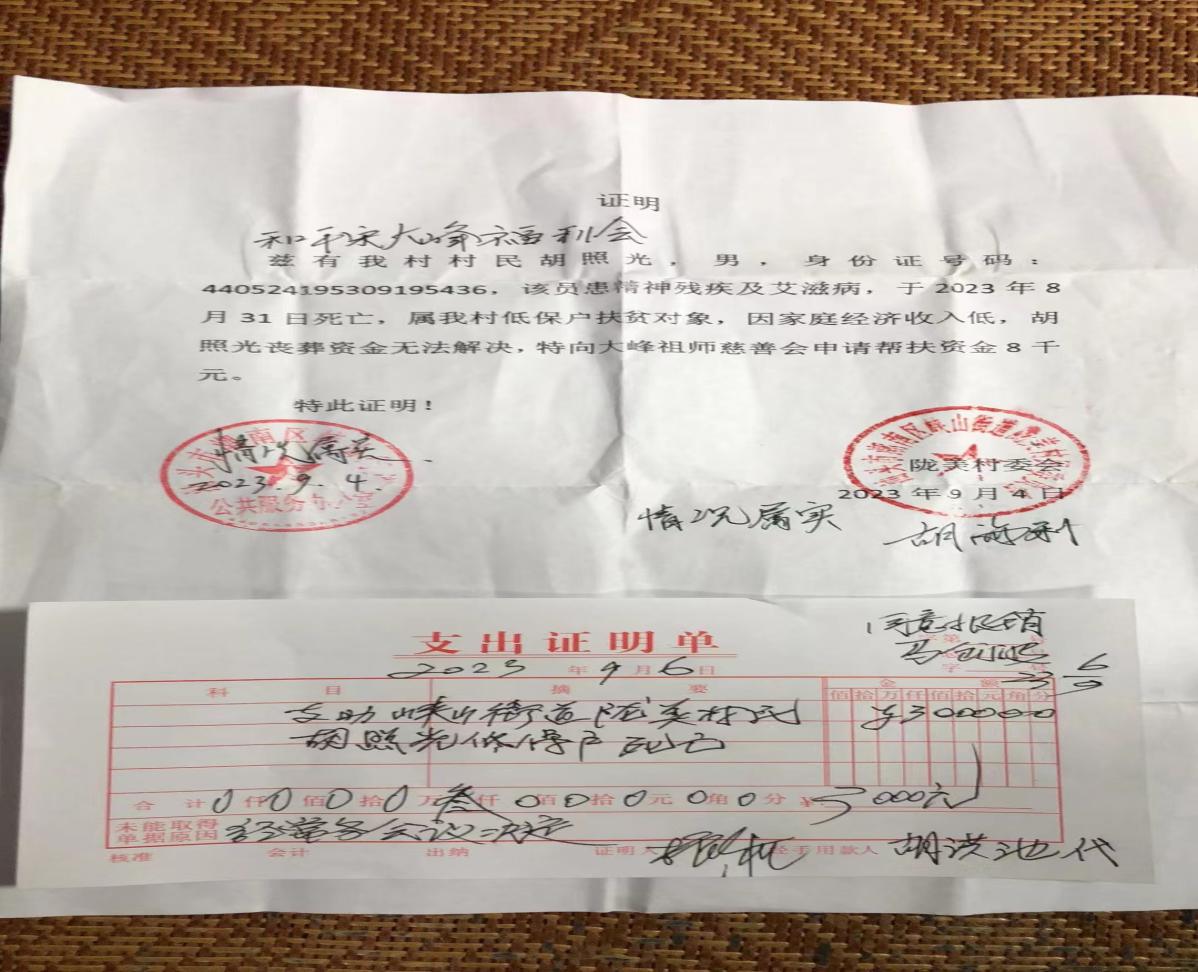 证明
和平宋大峰福利会
兹有我村村民胡照光，男，身份证号码：
440524195309195436，该员患精神残疾及艾滋病，于 2023 年 8
月 31 日死亡，属我村低保户扶贫对象，因家庭经济收入低，胡
照光丧葬资金无法解决，特向大峰祖师慈善会申请帮扶资金 8 千
元。
特此证明！
情况属实
2023.9.4.
公共服务办公室
陇美村委会
2023 年 9 月 4 日
情况属实
胡
同意报销
支出证明单
2023 年 9 月 6 日
字 第 号
科 目 摘 要 金 额
佰 拾 万 仟 佰 拾 元 角 分
支助峡山街道陇美村民 ¥300000
胡照光低保户死亡
合 计 0 仟 0 佰 0 拾 0 万 叁 仟 0 佰 0 拾 0 元 0 角 0 分 ¥ 3000元
未能取得
单据原因 经常务会议决定
核准 会计 出纳 证明人 经手用款人 胡洪池代